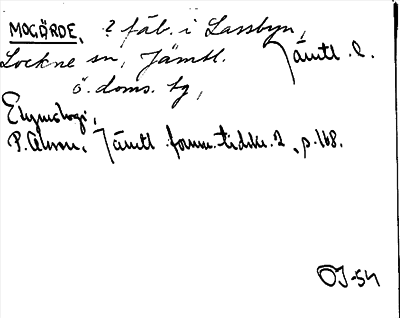 MOGÖRDE, ? fäb. i Lassbyn,
Lockne sn, Jämtl. Jämtl. l.
ö. doms. tg,
Etymologi,
P. Olsson, Jämtl. fornm. tidskr. 2, p. 168.
OJ-54